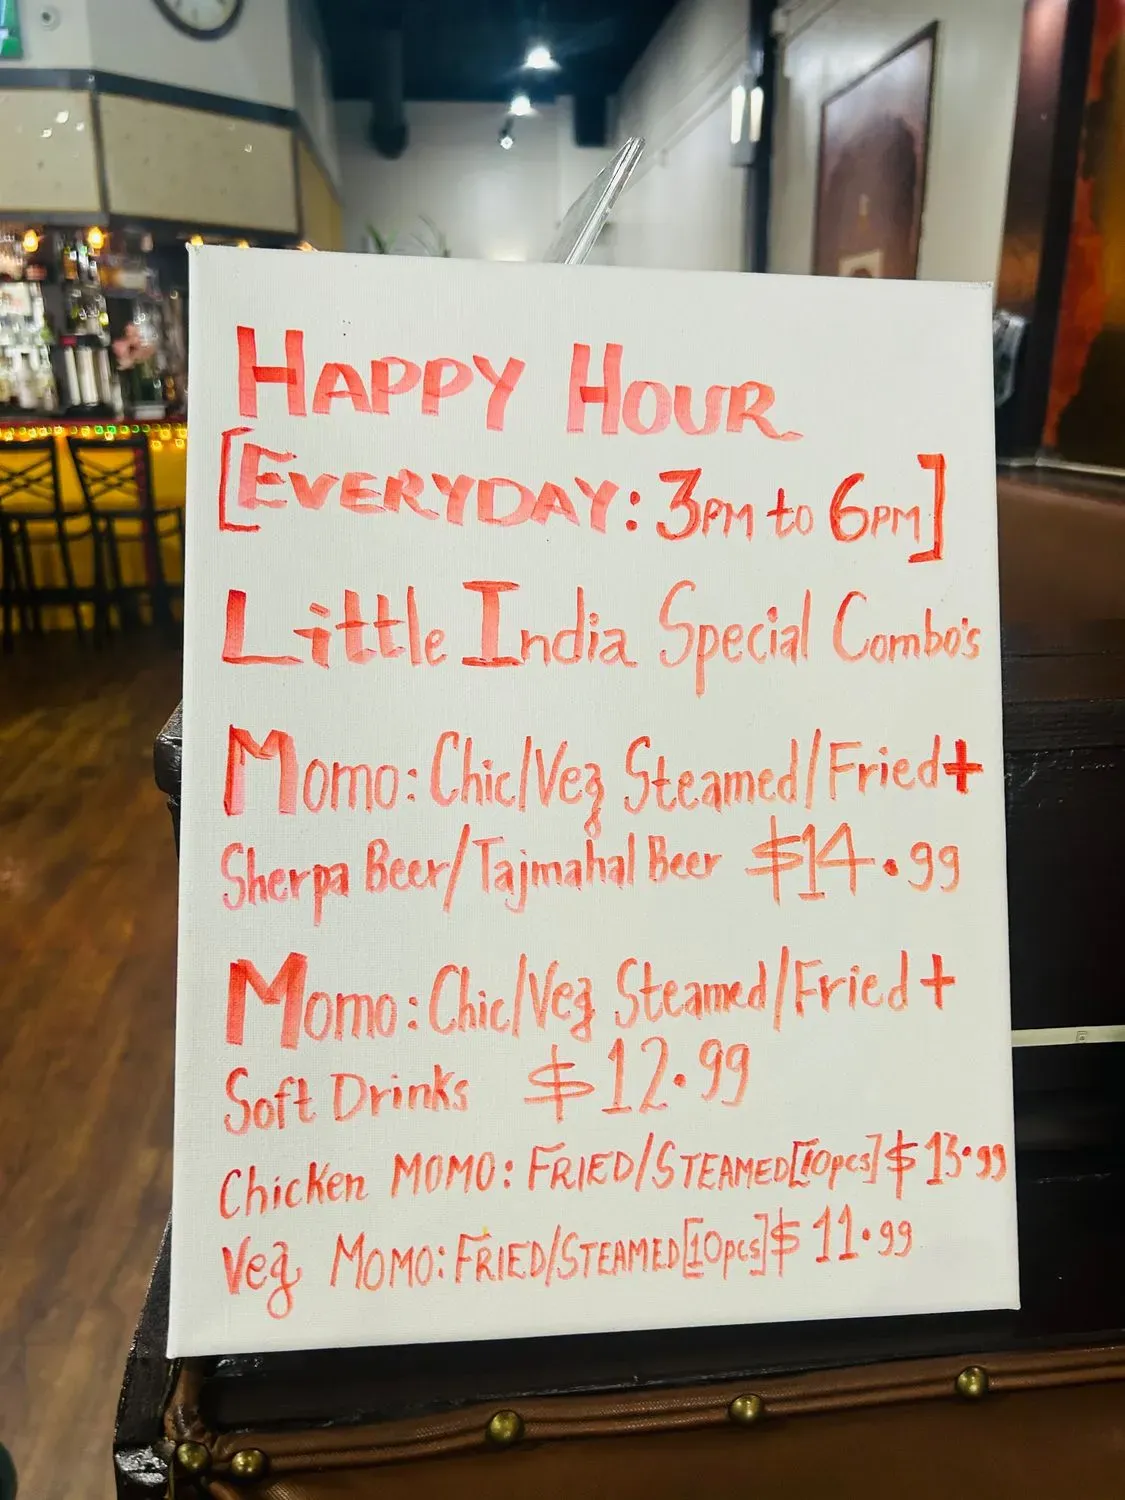 HAPPY HOUR
[EVERYDAY: 3PM to 6PM]
Little India Special Combo's
Momo: Chic/Veg Steamed/Fried+
Sherpa Beer/Tajmahal Beer $14.99
Momo: Chic/Veg Steamed/Fried +
Soft Drinks $12.99
Chicken MOMO: FRIED/STEAMED[10pcs] $13.99
Veg MOMO: FRIED/STEAMED[10pcs] $11.99